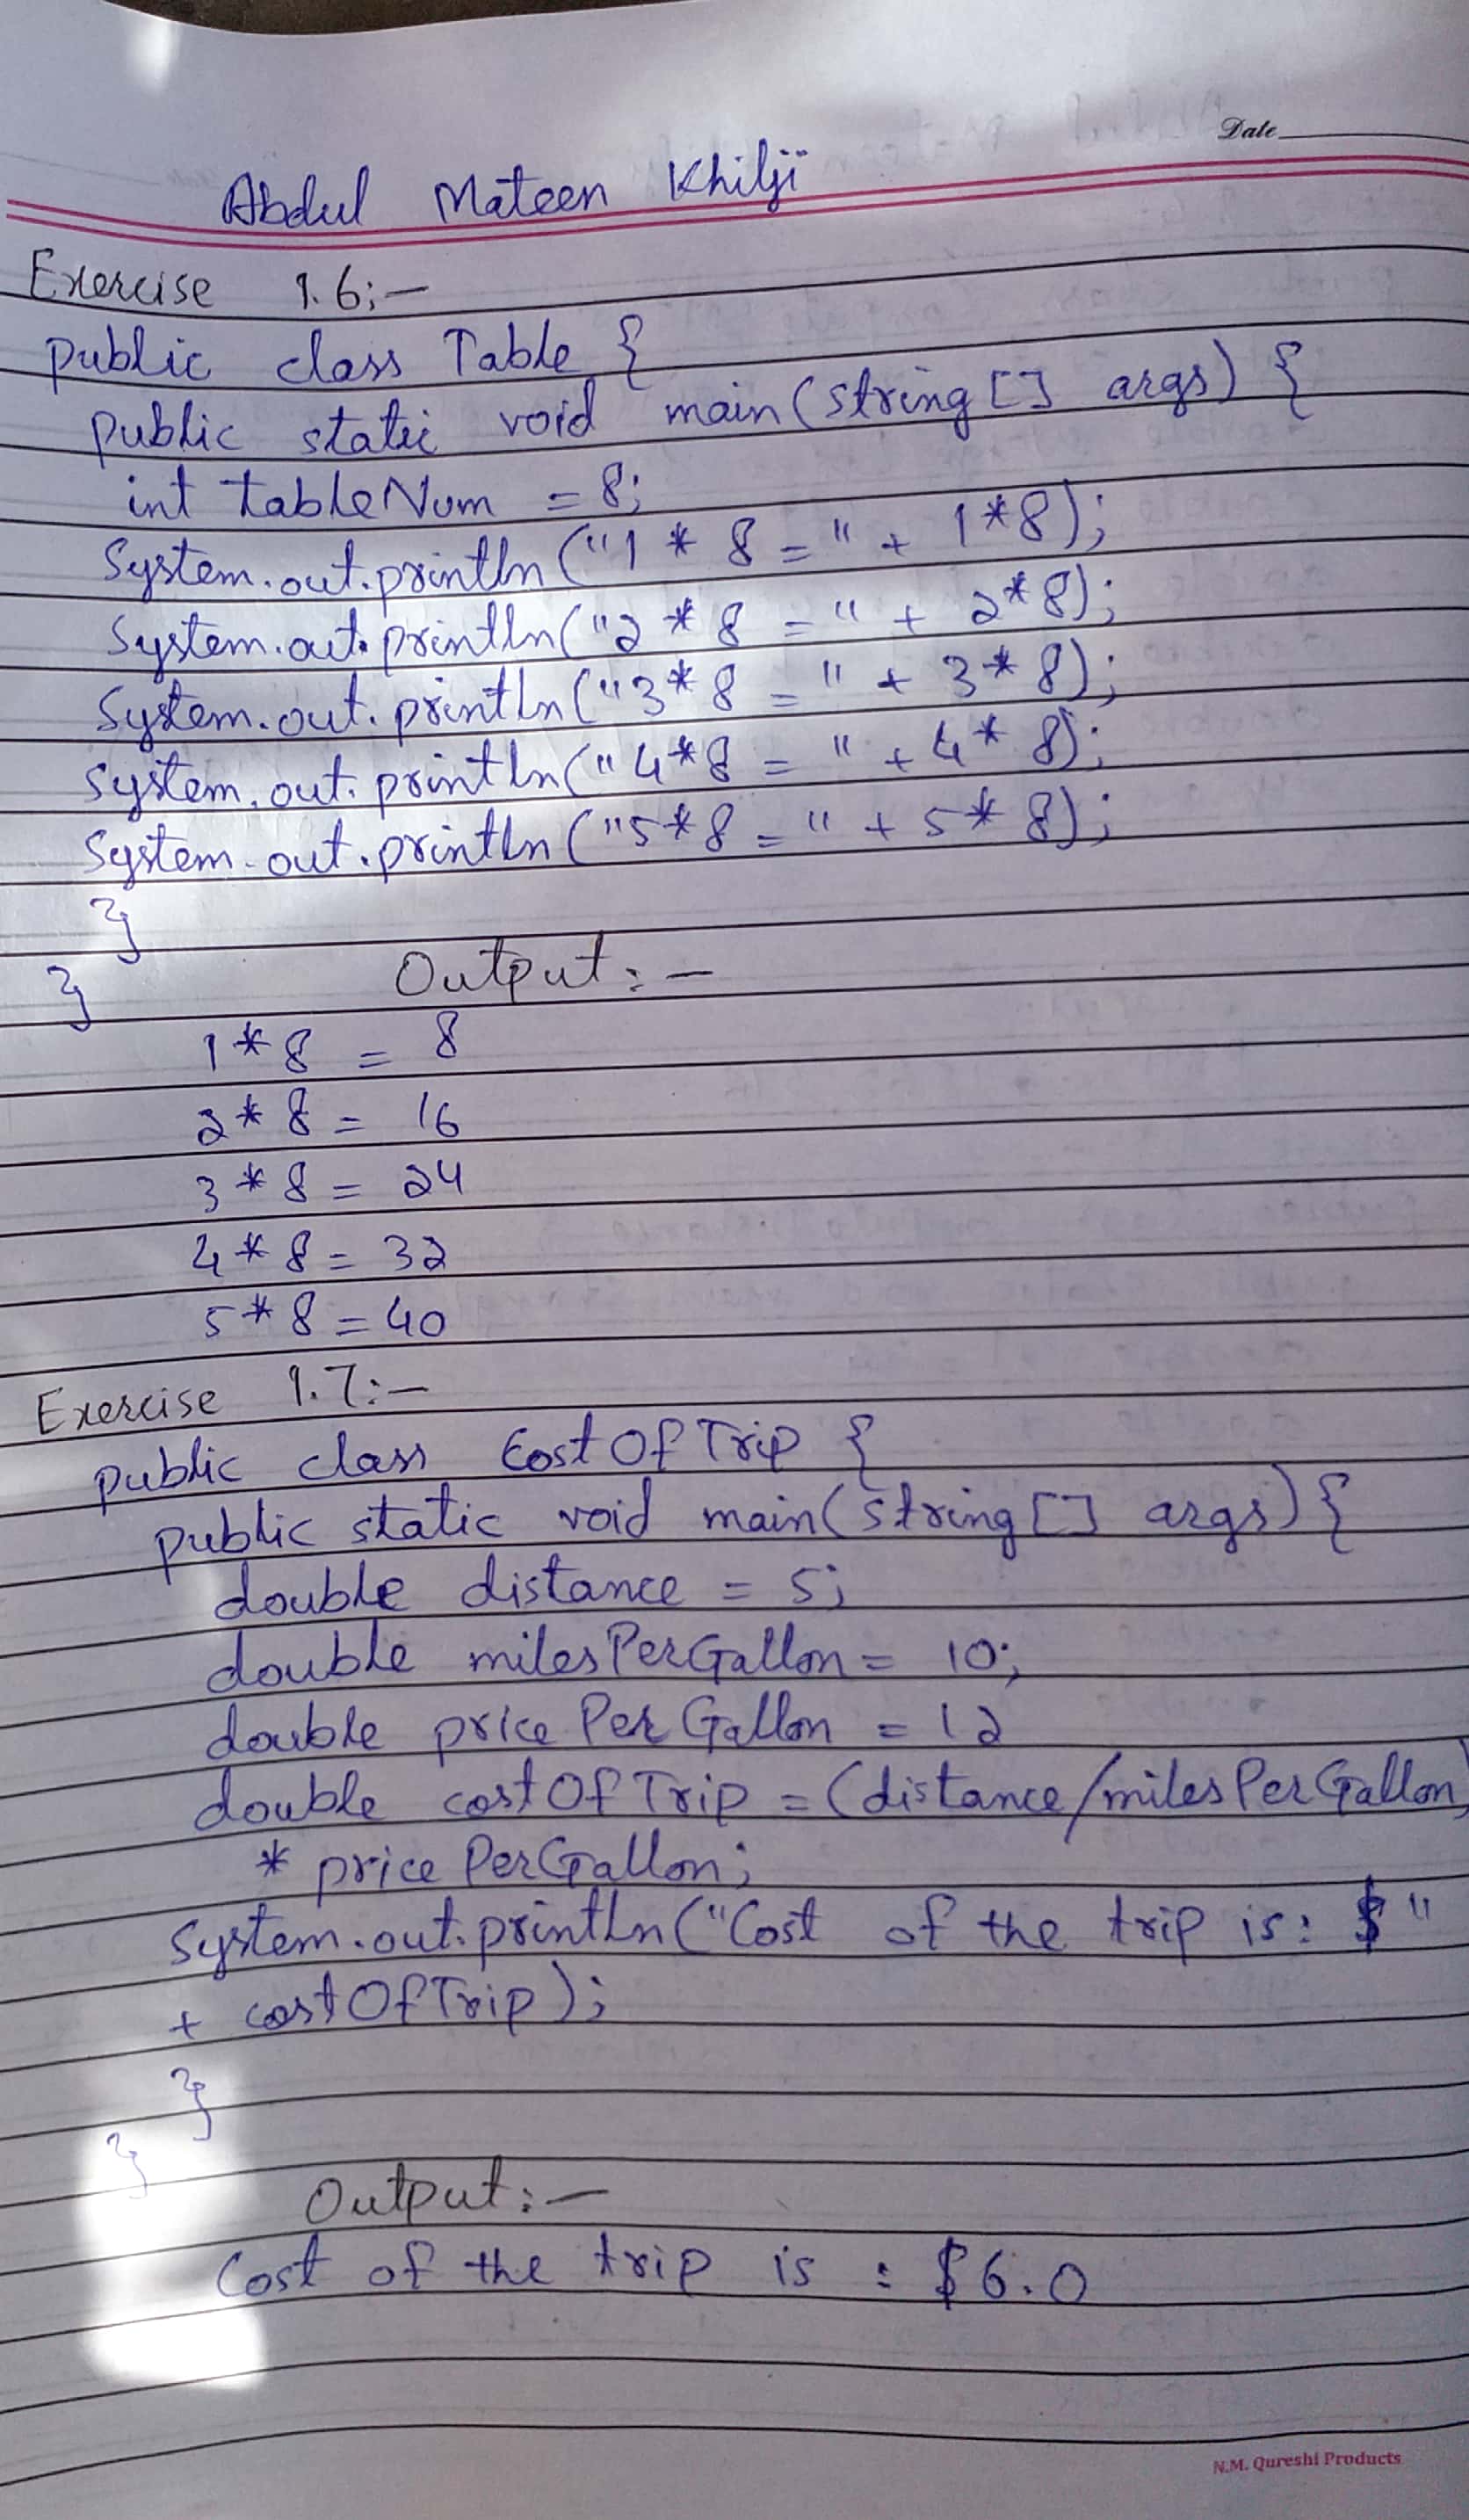 Date
Abdul Mateen Khilji
Exercise 1.6:-
public class Table {
public static void main(string[] args) {
int tableNum = 8;
System.out.println("1 * 8 = " + 1*8);
System.out.println("2 * 8 = " + 2*8);
System.out.println("3*8 = " + 3*8);
System.out.println("4*8 = " + 4*8);
System.out.println("5*8 = " + 5*8);
}
} Output:-
1*8 = 8
2*8 = 16
3*8 = 24
4*8 = 32
5*8 = 40
Exercise 1.7:-
public class CostOfTrip {
public static void main(string[] args){
double distance = 5;
double milesPerGallon = 10;
double pricePerGallon = 12
double costOfTrip = (distance/milesPerGallon)
* pricePerGallon;
System.out.println("Cost of the trip is: $"
+ costOfTrip);
}
}
Output:-
Cost of the trip is : $6.0
N.M. Qureshi Products